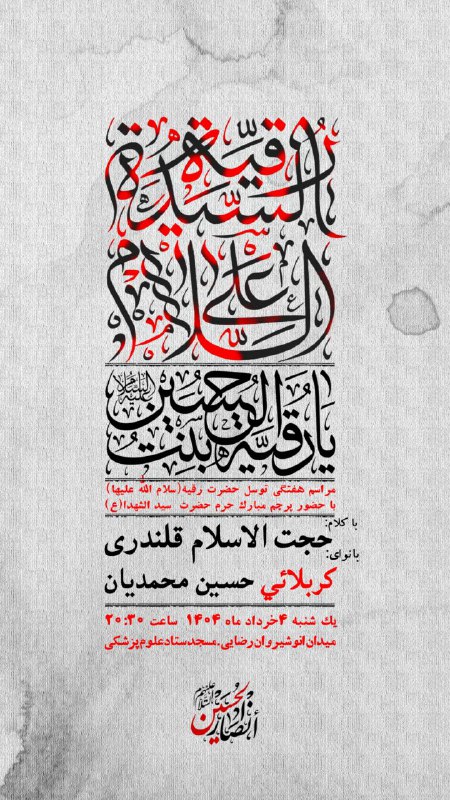 السلام علی
السیدة رقیة
یا رقیة بنت الحسین علیه السلام
مراسم هفتگی توسل حضرت رقیه(سلام الله علیها)
با حضور پرچم مبارک حرم حضرت سید الشهدا(ع)
با کلام:
حجت الاسلام قلندری
با نوای:
کربلائي حسین محمدیان
یك شنبه ۴خرداد ماه ۱۴۰۴ ساعت ۲۰:۳۰
میدان انوشیروان رضایی.مسجد ستاد علوم پزشکی
أنصار الحسین علیهم السلام